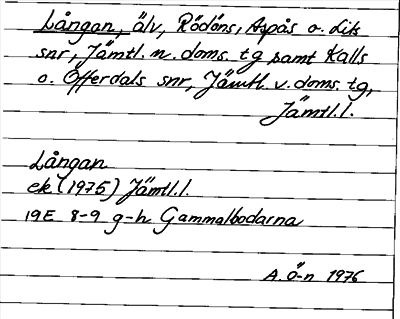 Långan, älv, Rödöns, Aspås o. Lits
snr, Jämtl. n. doms. tg samt Kalls
o. Offerdals snr, Jämtl. v. doms. tg,
Jämtl. l.
Långan
ek (1975) Jämtl. l.
19E 8-9 g-h Gammalbodarna
A. ö-n 1976